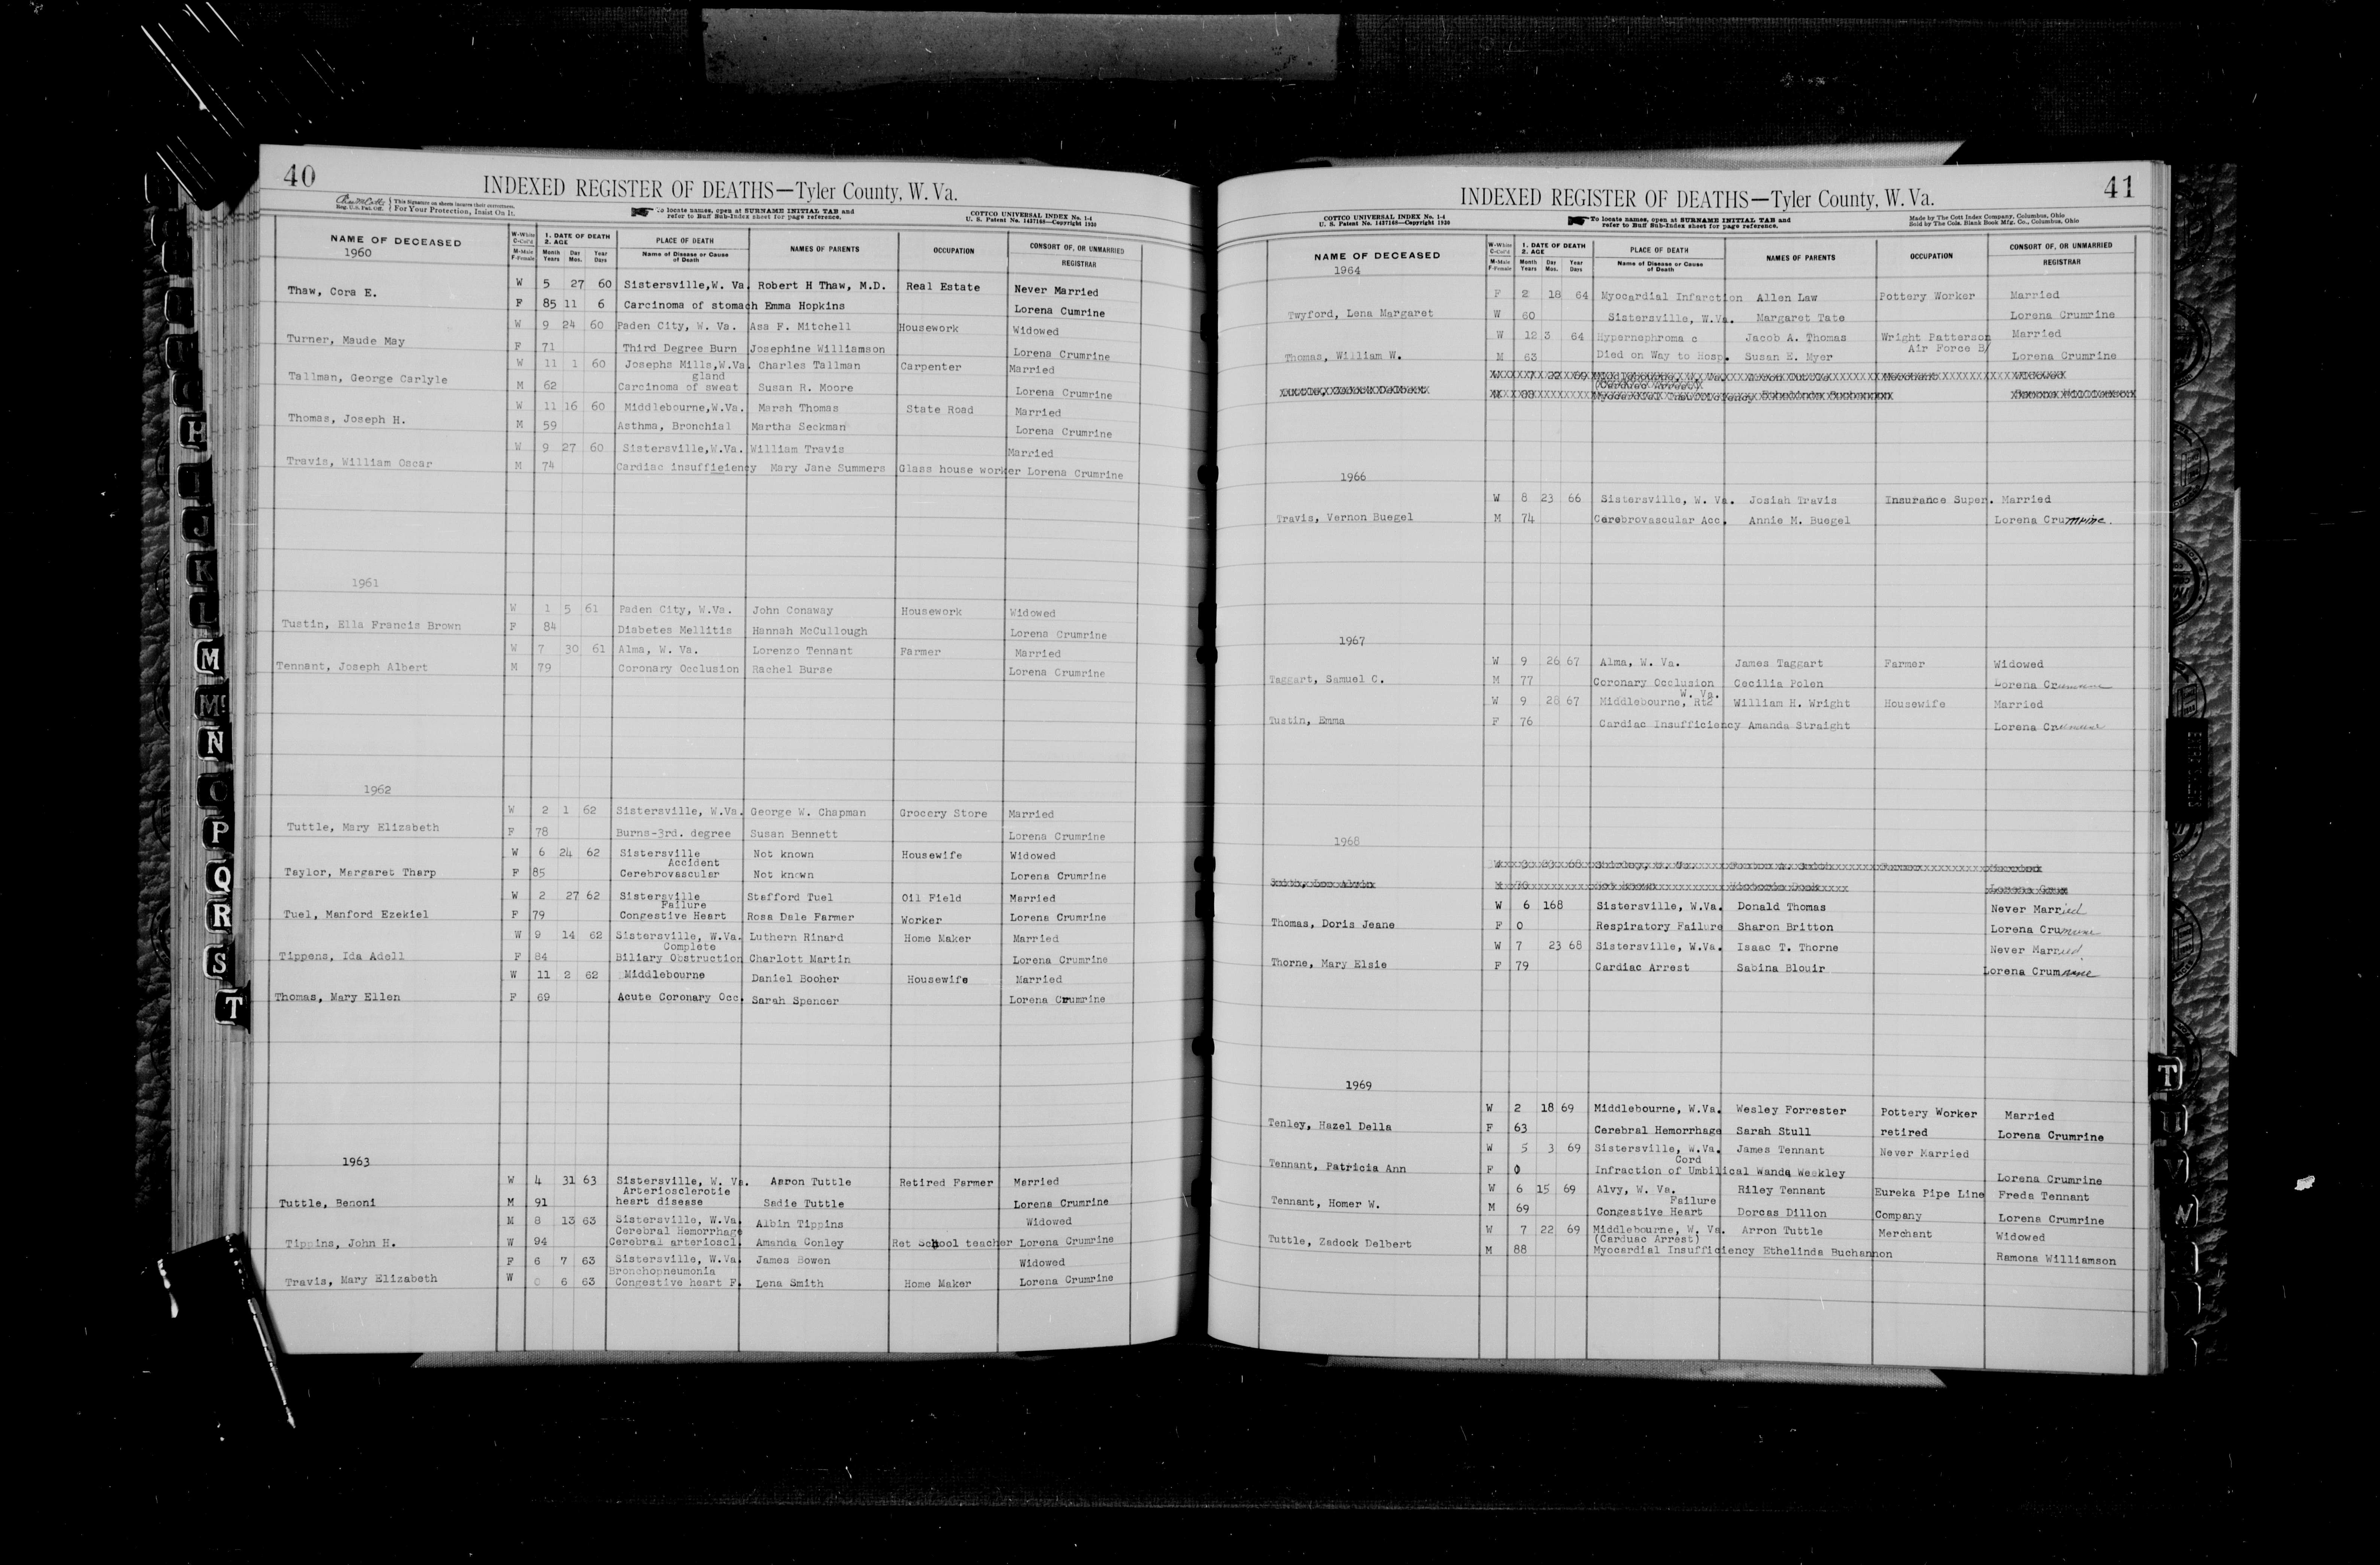 40
INDEXED REGISTER OF DEATHS—Tyler County, W. Va.
Reg. U.S. Pat. Off. This Signature on sheets insures their correctness. For Your Protection, Insist On It.
To locate names, open at SURNAME INITIAL TAB and refer to Buff Sub-Index sheet for page reference.
COTTCO UNIVERSAL INDEX No. 1-4
U. S. Patent No. 1437168—Copyright 1930
NAME OF DECEASED W-White C-Col'd M-Male F-Female 1. DATE OF DEATH 2. AGE Month Years Day Mos. Year Days PLACE OF DEATH Name of Disease or Cause of Death NAMES OF PARENTS OCCUPATION CONSORT OF, OR UNMARRIED REGISTRAR
1960
W 5 27 60 Sistersville, W. Va Robert H Thaw, M.D. Real Estate Never Married
Thaw, Cora E. F 85 11 6 Carcinoma of stomach Emma Hopkins Lorena Cumrine
W 9 24 60 Paden City, W. Va. Asa F. Mitchell Housework Widowed
Turner, Maude May F 71 Third Degree Burn Josephine Williamson Lorena Crumrine
W 11 1 60 Josephs Mills, W.Va. Charles Tallman Carpenter Married
gland
Tallman, George Carlyle M 62 Carcinoma of sweat Susan R. Moore Lorena Crumrine
W 11 16 60 Middlebourne, W.Va. Marsh Thomas State Road Married
Thomas, Joseph H. M 59 Asthma, Bronchial Martha Seckman Lorena Crumrine
W 9 27 60 Sistersville, W.Va. William Travis Married
Travis, William Oscar M 74 Cardiac insuffieiency Mary Jane Summers Glass house worker Lorena Crumrine
1961
W 1 5 61 Paden City, W.Va. John Conaway Housework Widowed
Tustin, Ella Francis Brown F 84 Diabetes Mellitis Hannah McCullough Lorena Crumrine
W 7 30 61 Alma, W. Va. Lorenzo Tennant Farmer Married
Tennant, Joseph Albert M 79 Coronary Occlusion Rachel Burse Lorena Crumrine
1962
W 2 1 62 Sistersville, W.Va. George W. Chapman Grocery Store Married
Tuttle, Mary Elizabeth F 78 Burns-3rd. degree Susan Bennett Lorena Crumrine
W 6 24 62 Sistersville Not known Housewife Widowed
Accident
Taylor, Margaret Tharp F 85 Cerebrovascular Not known Lorena Crumrine
W 2 27 62 Sistersville Stafford Tuel Oil Field Married
Failure
Tuel, Manford Ezekiel F 79 Congestive Heart Rosa Dale Farmer Worker Lorena Crumrine
W 9 14 62 Sistersville, W.Va. Luthern Rinard Home Maker Married
Complete
Tippens, Ida Adell F 84 Biliary Obstruction Charlott Martin Lorena Crumrine
W 11 2 62 Middlebourne Daniel Booher Housewife Married
Thomas, Mary Ellen F 69 Acute Coronary Occ. Sarah Spencer Lorena Crumrine
1963
W 4 31 63 Sistersville, W. Va. Aaron Tuttle Retired Farmer Married
Arteriosclerotie
Tuttle, Benoni M 91 heart disease Sadie Tuttle Lorena Crumrine
M 8 13 63 Sistersville, W.Va. Albin Tippins Widowed
Cerebral Hemorrhage
Tippins, John H. W 94 Cerebral arterioscl. Amanda Conley Ret School teacher Lorena Crumrine
F 6 7 63 Sistersville, W.Va. James Bowen Widowed
Bronchopneumonia
Travis, Mary Elizabeth W 6 63 Congestive heart F. Lena Smith Home Maker Lorena Crumrine
41
INDEXED REGISTER OF DEATHS—Tyler County, W. Va.
COTTCO UNIVERSAL INDEX No. 1-4
U. S. Patent No. 1437168—Copyright 1930
To locate names, open at SURNAME INITIAL TAB and refer to Buff Sub-Index sheet for page reference.
Made by The Cott Index Company, Columbus, Ohio
Sold by The Cols. Blank Book Mfg. Co., Columbus, Ohio
NAME OF DECEASED W-White C-Col'd M-Male F-Female 1. DATE OF DEATH 2. AGE Month Years Day Mos. Year Days PLACE OF DEATH Name of Disease or Cause of Death NAMES OF PARENTS OCCUPATION CONSORT OF, OR UNMARRIED REGISTRAR
1964
F 2 18 64 Myocardial Infarction Allen Law Pottery Worker Married
Twyford, Lena Margaret W 60 Sistersville, W.Va. Margaret Tate Lorena Crumrine
W 12 3 64 Hypernephroma c Jacob A. Thomas Wright Patterson Married
Air Force B/
Thomas, William W. M 63 Died on Way to Hosp. Susan E. Myer Lorena Crumrine
1966
W 8 23 66 Sistersville, W. Va. Josiah Travis Insurance Super. Married
Travis, Vernon Buegel M 74 Cerebrovascular Acc. Annie M. Buegel Lorena Crumrine.
1967
W 9 26 67 Alma, W. Va. James Taggart Farmer Widowed
Taggart, Samuel C. M 77 Coronary Occlusion Cecilia Polen Lorena Crumrine
W. Va.
W 9 28 67 Middlebourne, Rt2 William H. Wright Housewife Married
Tustin, Emma F 76 Cardiac Insufficiency Amanda Straight Lorena Crumrine
1968
W 6 168 Sistersville, W.Va. Donald Thomas Never Married
Thomas, Doris Jeane F 0 Respiratory Failure Sharon Britton Lorena Crumrine
W 7 23 68 Sistersville, W.Va. Isaac T. Thorne Never Married
Thorne, Mary Elsie F 79 Cardiac Arrest Sabina Blouir Lorena Crumrine
1969
W 2 18 69 Middlebourne, W.Va. Wesley Forrester Pottery Worker Married
Tenley, Hazel Della F 63 Cerebral Hemorrhage Sarah Stull retired Lorena Crumrine
W 5 3 69 Sistersville, W.Va. James Tennant Never Married
Cord
Tennant, Patricia Ann F 0 Infraction of Umbilical Wanda Weekley Lorena Crumrine
W 6 15 69 Alvy, W. Va. Riley Tennant Eureka Pipe Line Freda Tennant
Failure
Tennant, Homer W. M 69 Congestive Heart Dorcas Dillon Company Lorena Crumrine
W 7 22 69 Middlebourne, W. Va. Arron Tuttle Merchant Widowed
(Carduac Arrest)
Tuttle, Zadock Delbert M 88 Myocardial Insufficiency Ethelinda Buchannon Ramona Williamson
H
I
J
K
L
M
Mc
N
O
P
Q
R
S
T
T
U
V
W